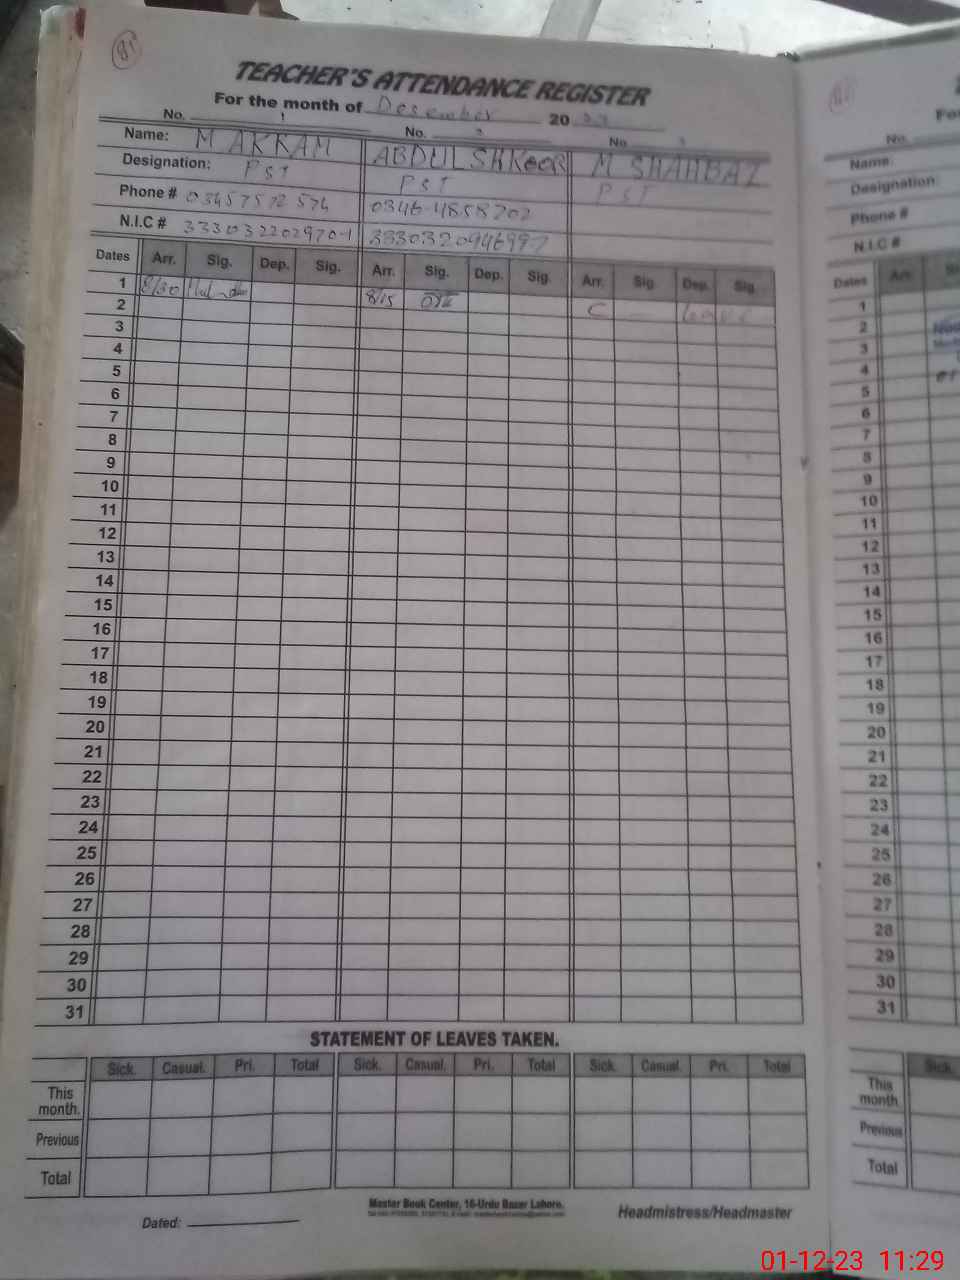 81
TEACHER'S ATTENDANCE REGISTER
For the month of Desember 20 23
No. 1 No. 2 No. 3
Name: M AKRAM ABDUL SHKOOR M SHAHBAZ
Designation: PST PST PST
Phone # 03457572574 0346-4858702
N.I.C # 3330322029701 3330320946997
Dates Arr. Sig. Dep. Sig. Arr. Sig. Dep. Sig. Arr. Sig. Dep. Sig.
1 8/30 8/15 C — Leave
2
3
4
5
6
7
8
9
10
11
12
13
14
15
16
17
18
19
20
21
22
23
24
25
26
27
28
29
30
31
STATEMENT OF LEAVES TAKEN.
Sick. Casual. Pri. Total Sick. Casual. Pri. Total Sick. Casual. Pri. Total
This month.
Previous
Total
Master Book Center, 16-Urdu Bazar Lahore.
Dated: Headmistress/Headmaster
No.
Name:
Designation:
Phone #
N.I.C #
Dates Arr.
1
2
3
4
5
6
7
8
9
10
11
12
13
14
15
16
17
18
19
20
21
22
23
24
25
26
27
28
29
30
31
Sick.
This month
Previous
Total
01-12-23 11:29